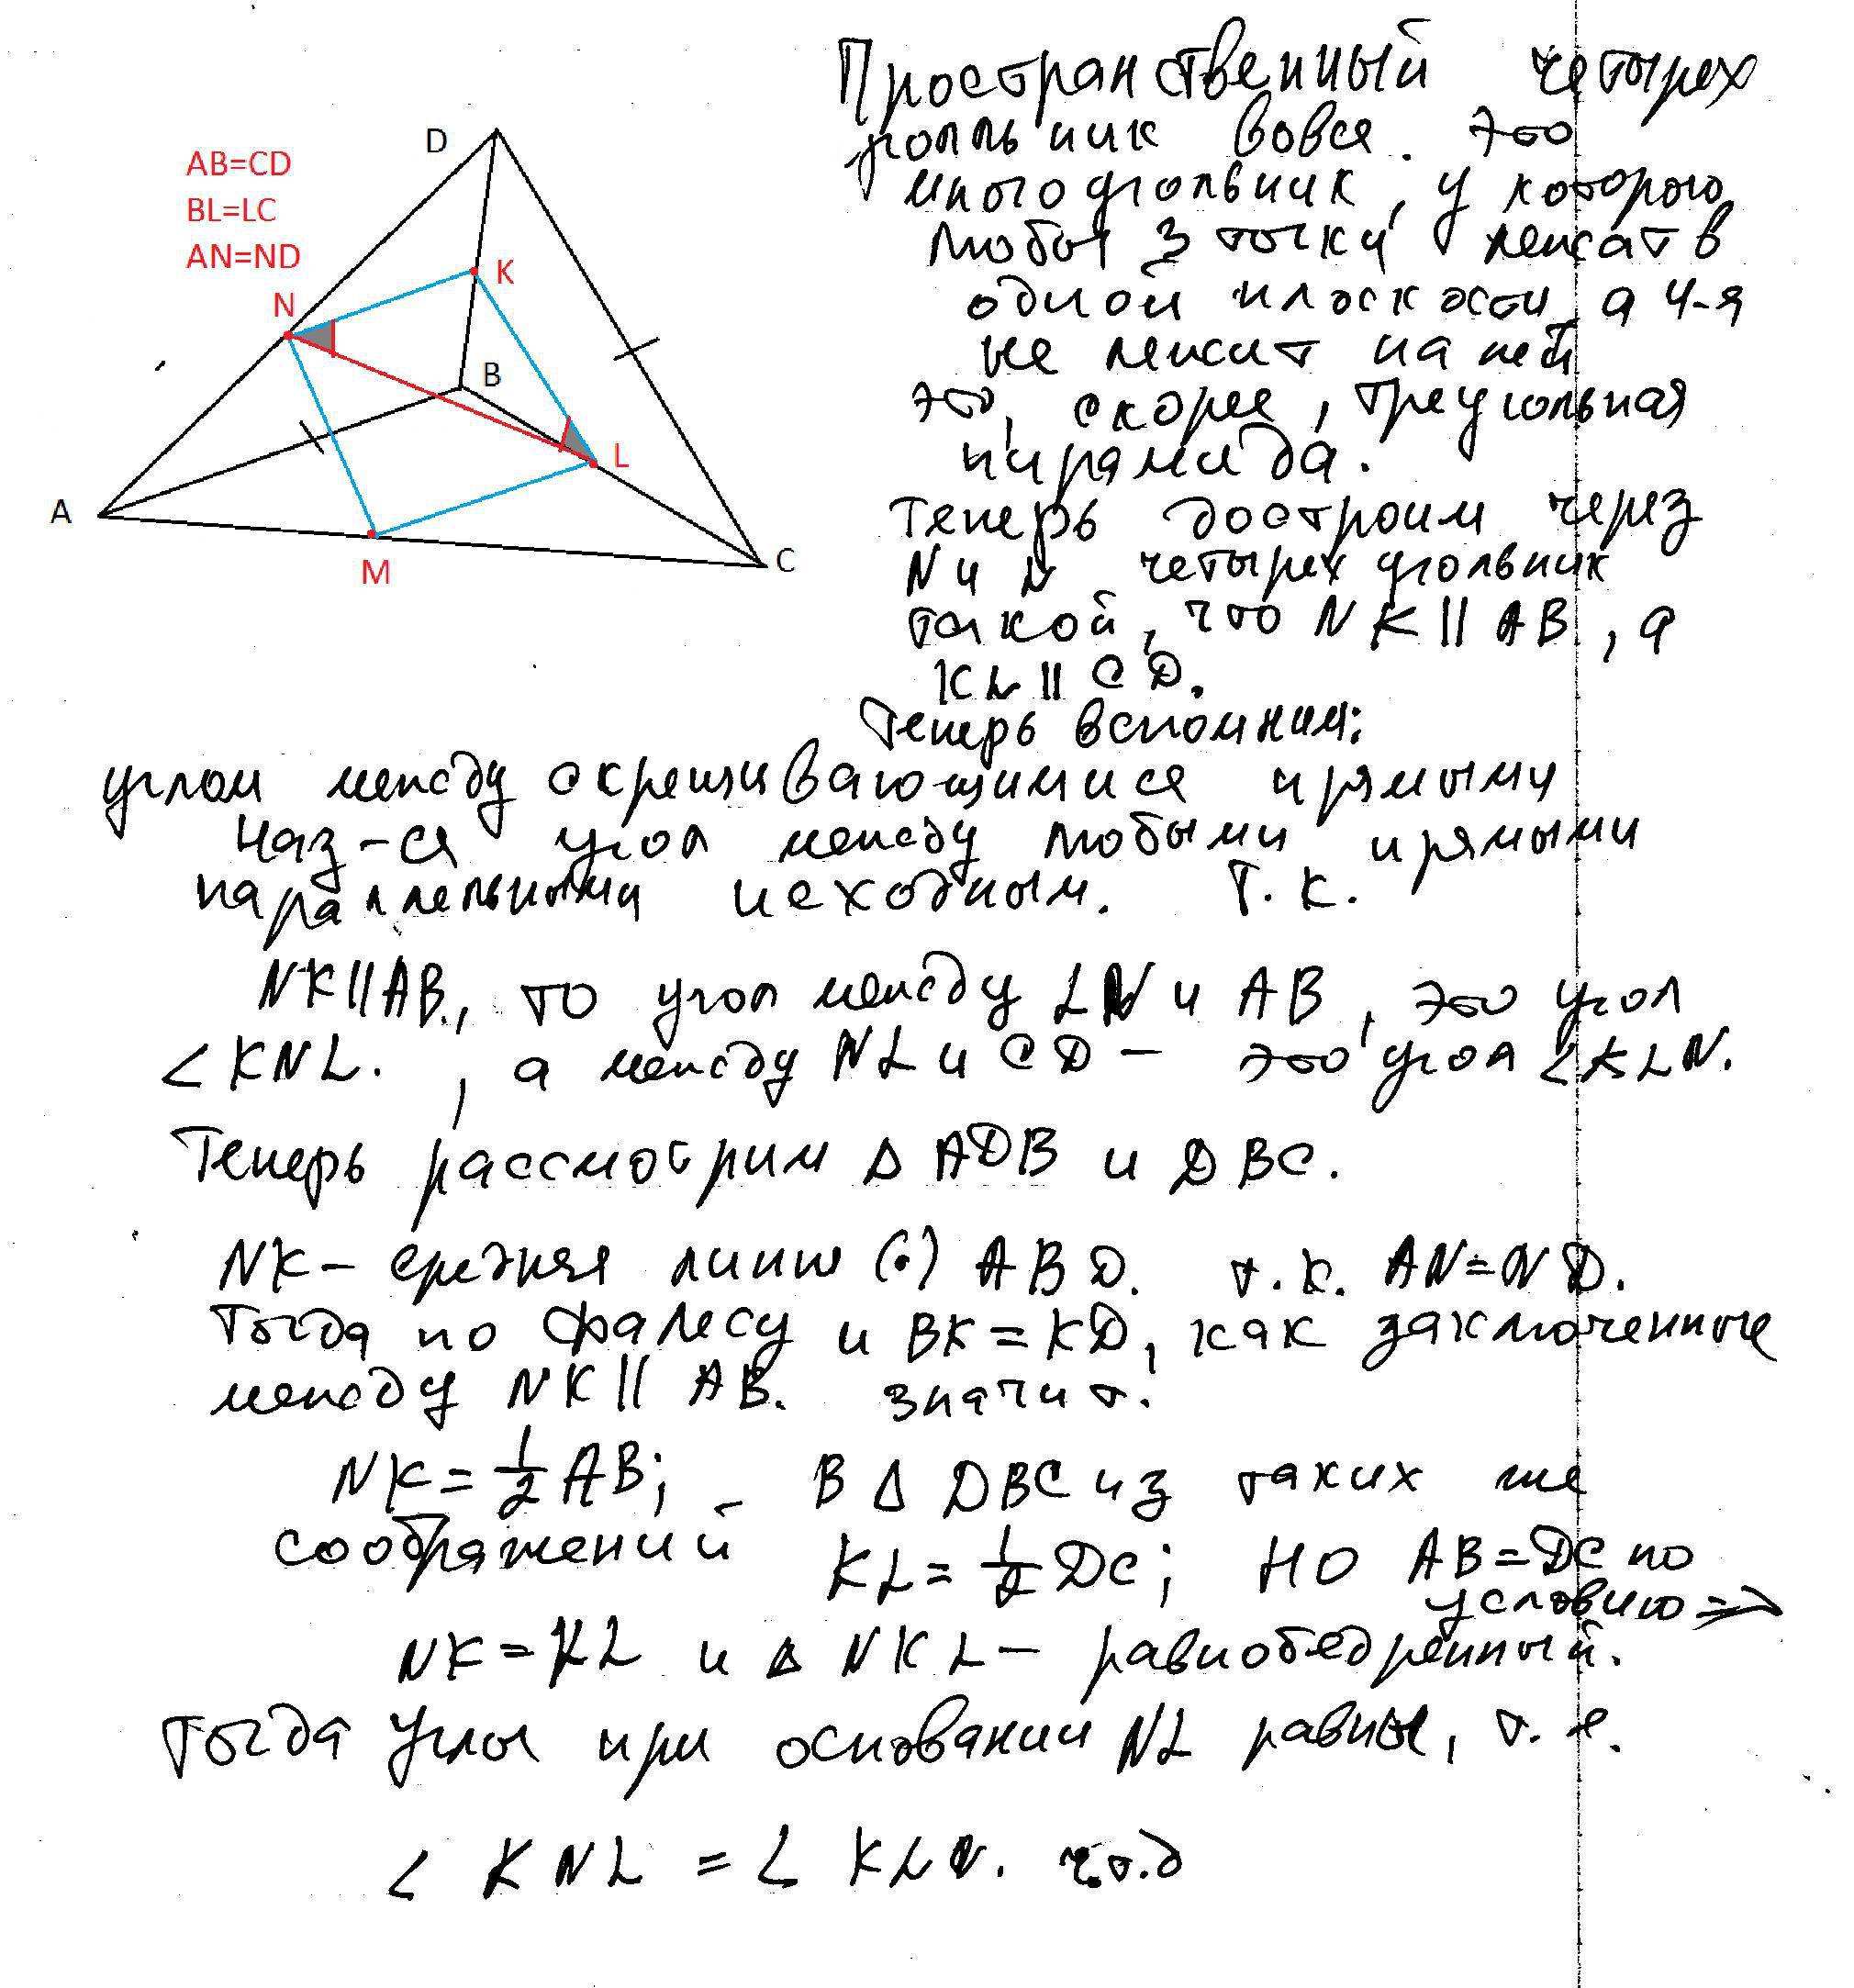 D
AB=CD
BL=LC
AN=ND
N
K
B
L
A
M
C
Пространственный четырех
угольник вовсе. это
многоугольник, у которого
любы 3 точки лежат в
одной плоскости, а 4-я
не лежит на ней
это, скорее, треугольная
пирамида.
Теперь достроим через
N и четырехугольник
такой, что NK || AB, а
KL || CD.
Теперь вспомним:
углом между скрещивающимися прямыми
наз-ся угол между любыми прямыми
параллельными исходным. Т.к.
NK||AB, то угол между LN и AB, это угол
<KNL. , а между NL и CD - это угол <KLN.
Теперь рассмотрим Δ ADB и DBC.
NK - средняя линия (.) ABD. т.к. AN=ND.
Тогда по Фалесу и BK=KD, как заключенные
между NK || AB. значит:
NK = 1/2 AB; В Δ DBC из таких же
соображений KL = 1/2 DC; но AB=DC по
условию =>
NK=KL и Δ NKL - равнобедренный.
Тогда углы при основании NL равны, т.е.
< KNL = < KLN. ч.т.д